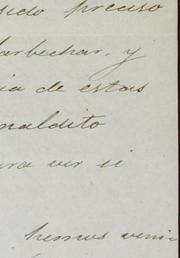 sido preciso
barbechar, y
ia de estas
maldito
ara ver si
hemos veni